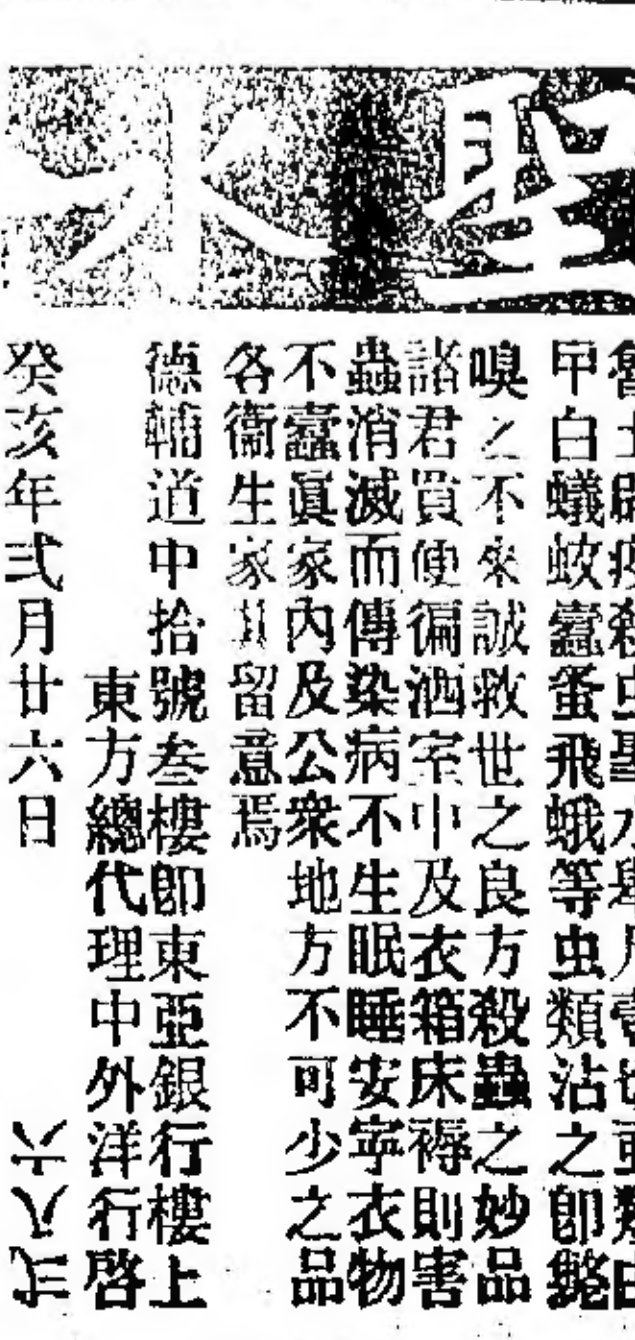 聖水
甲白蟻蚊蠹蚤飛蛾等虫類沾之卽斃
嗅之不來誠救世之良方殺蟲之妙品
諸君買便徧洒室中及衣箱床褥則害
蟲消滅而傳染病不生眠睡安寧衣物
不蠹眞家內及公衆地方不可少之品
各衞生家其留意焉
德輔道中拾號叁樓卽東亞銀行樓上
東方總代理中外洋行啓
癸亥年弍月廿六日